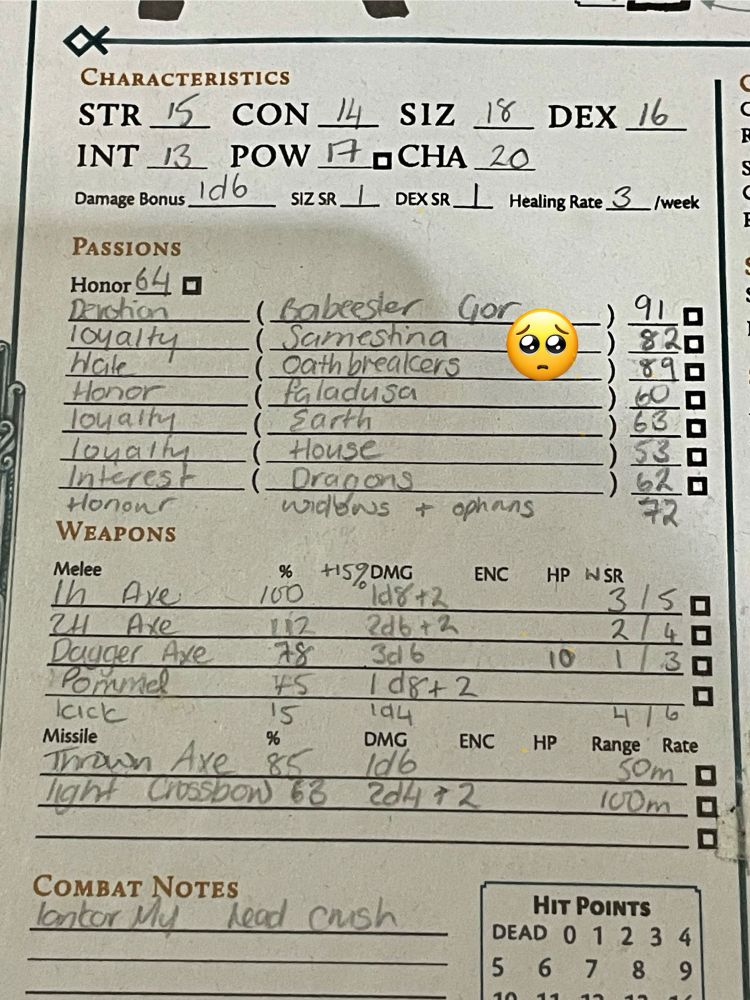 CHARACTERISTICS
STR 15 CON 14 SIZ 18 DEX 16
INT 13 POW 17 CHA 20
Damage Bonus 1d6 SIZ SR 1 DEX SR 1 Healing Rate 3 /week
PASSIONS
Honor 64
Devotion ( Babeester Gor ) 91
loyalty ( Samestina ) 82
Hate ( Oathbreakers ) 89
Honor ( faladusa ) 60
loyalty ( Earth ) 63
loyalty ( House ) 53
Interest ( Dragons ) 62
Honour widows + ophans 72
WEAPONS
Melee % +15% DMG ENC HP W SR
1h Axe 100 1d8+2 3/5
2H Axe 112 2d6+2 2/4
Dagger Axe 78 3d6 10 1/3
Pommel 75 1d8+2
kick 15 1d4 4/6
Missile % DMG ENC HP Range Rate
Thrown Axe 85 1d6 50m
light Crossbow 63 2d4+2 100m
COMBAT NOTES
My head crush
HIT POINTS
DEAD 0 1 2 3 4
5 6 7 8 9